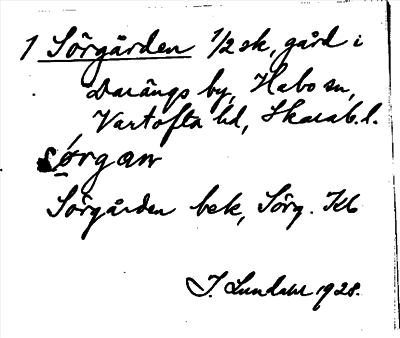 1 Sörgården 1/2 sk, gård i
Darängs by, Habo sn,
Vartofta hd, Skarab. l.
sǿrgaṇ
Sörgården bek, Sörg. Kb
J. Lundahl 1928.